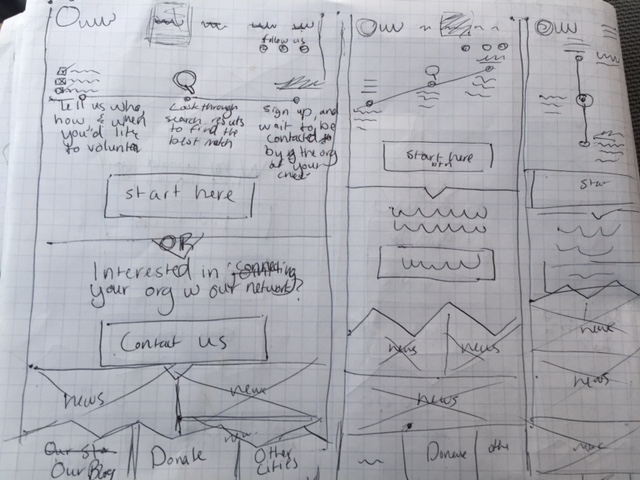 follow us
Tell us who,
how & when
you'd like
to volunteer
Look through
search results
to find the
best match
Sign up, and
wait to be
contacted
by the org
of your
start here
OR
Interested in connecting
your org w our network?
Contact us
news
news
Our
Our Blog
Donate
Other
Cities
Start here
btn
news
news
news
Donate
othe
Star
news
news